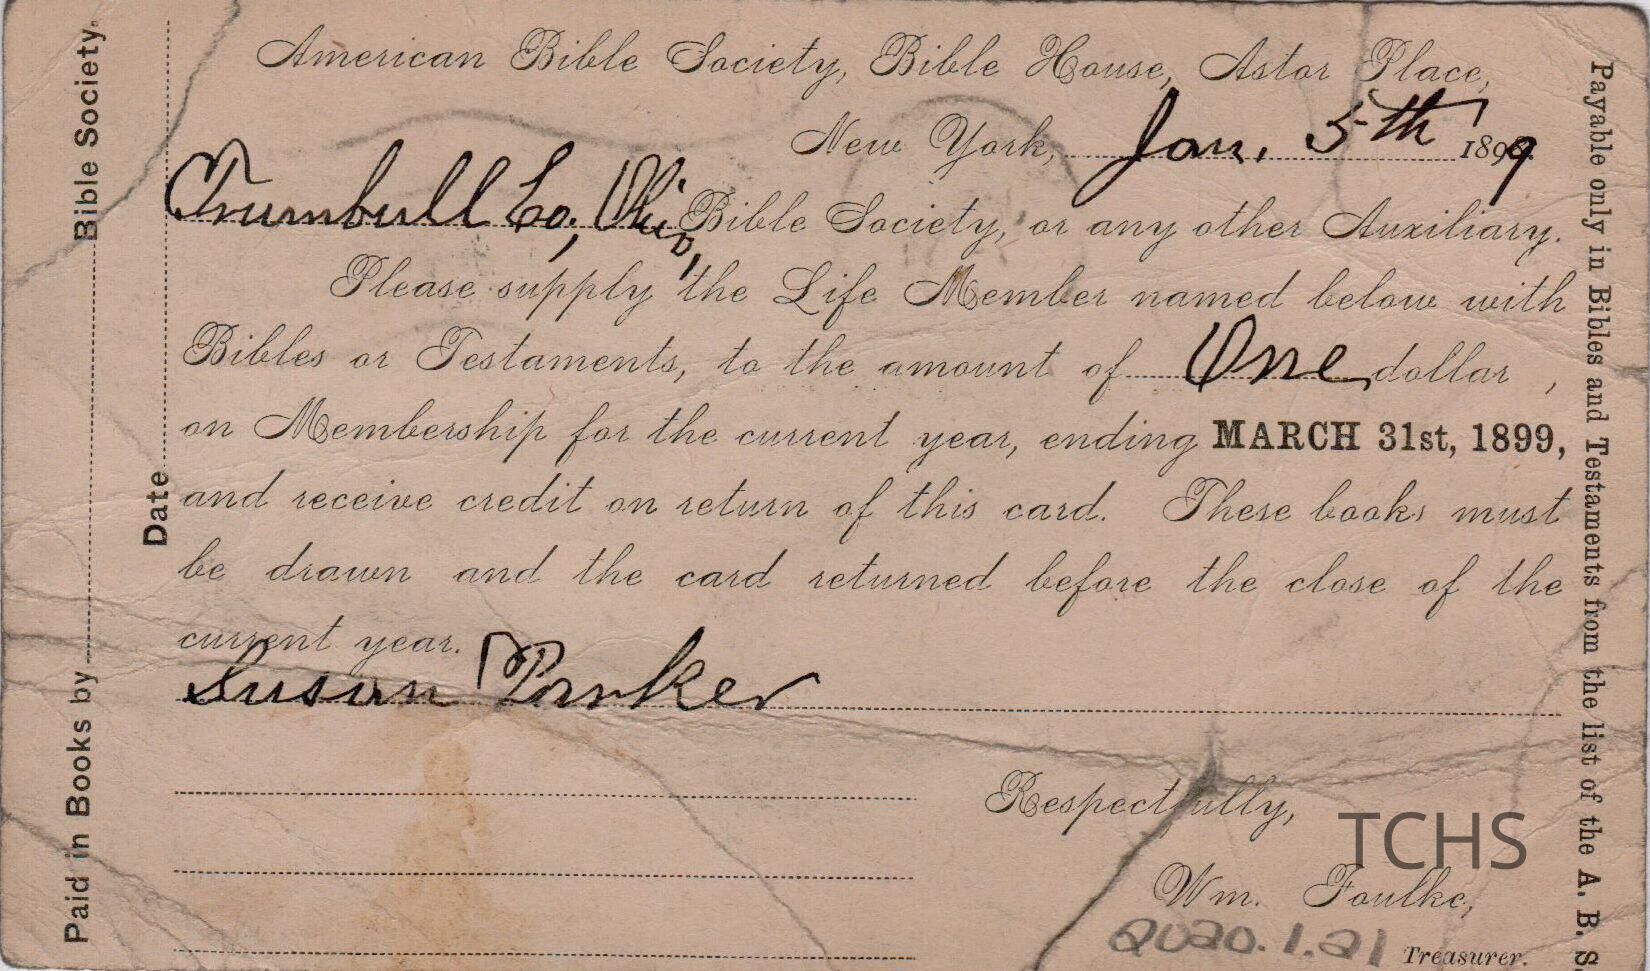 American Bible Society, Bible House, Astor Place,
New York, Jan. 5th 1899
Trumbull Co., Ohio, Bible Society, or any other Auxiliary.
Please supply the Life Member named below with
Bibles or Testaments, to the amount of One dollar ,
on Membership for the current year, ending MARCH 31st, 1899,
and receive credit on return of this card. These books must
be drawn and the card returned before the close of the
current year.
Susan Parker
Respectfully,
Wm. Foulke,
Treasurer.
TCHS
2020.1.21
Paid in Books by Bible Society.
Date
Payable only in Bibles and Testaments from the list of the A. B. S